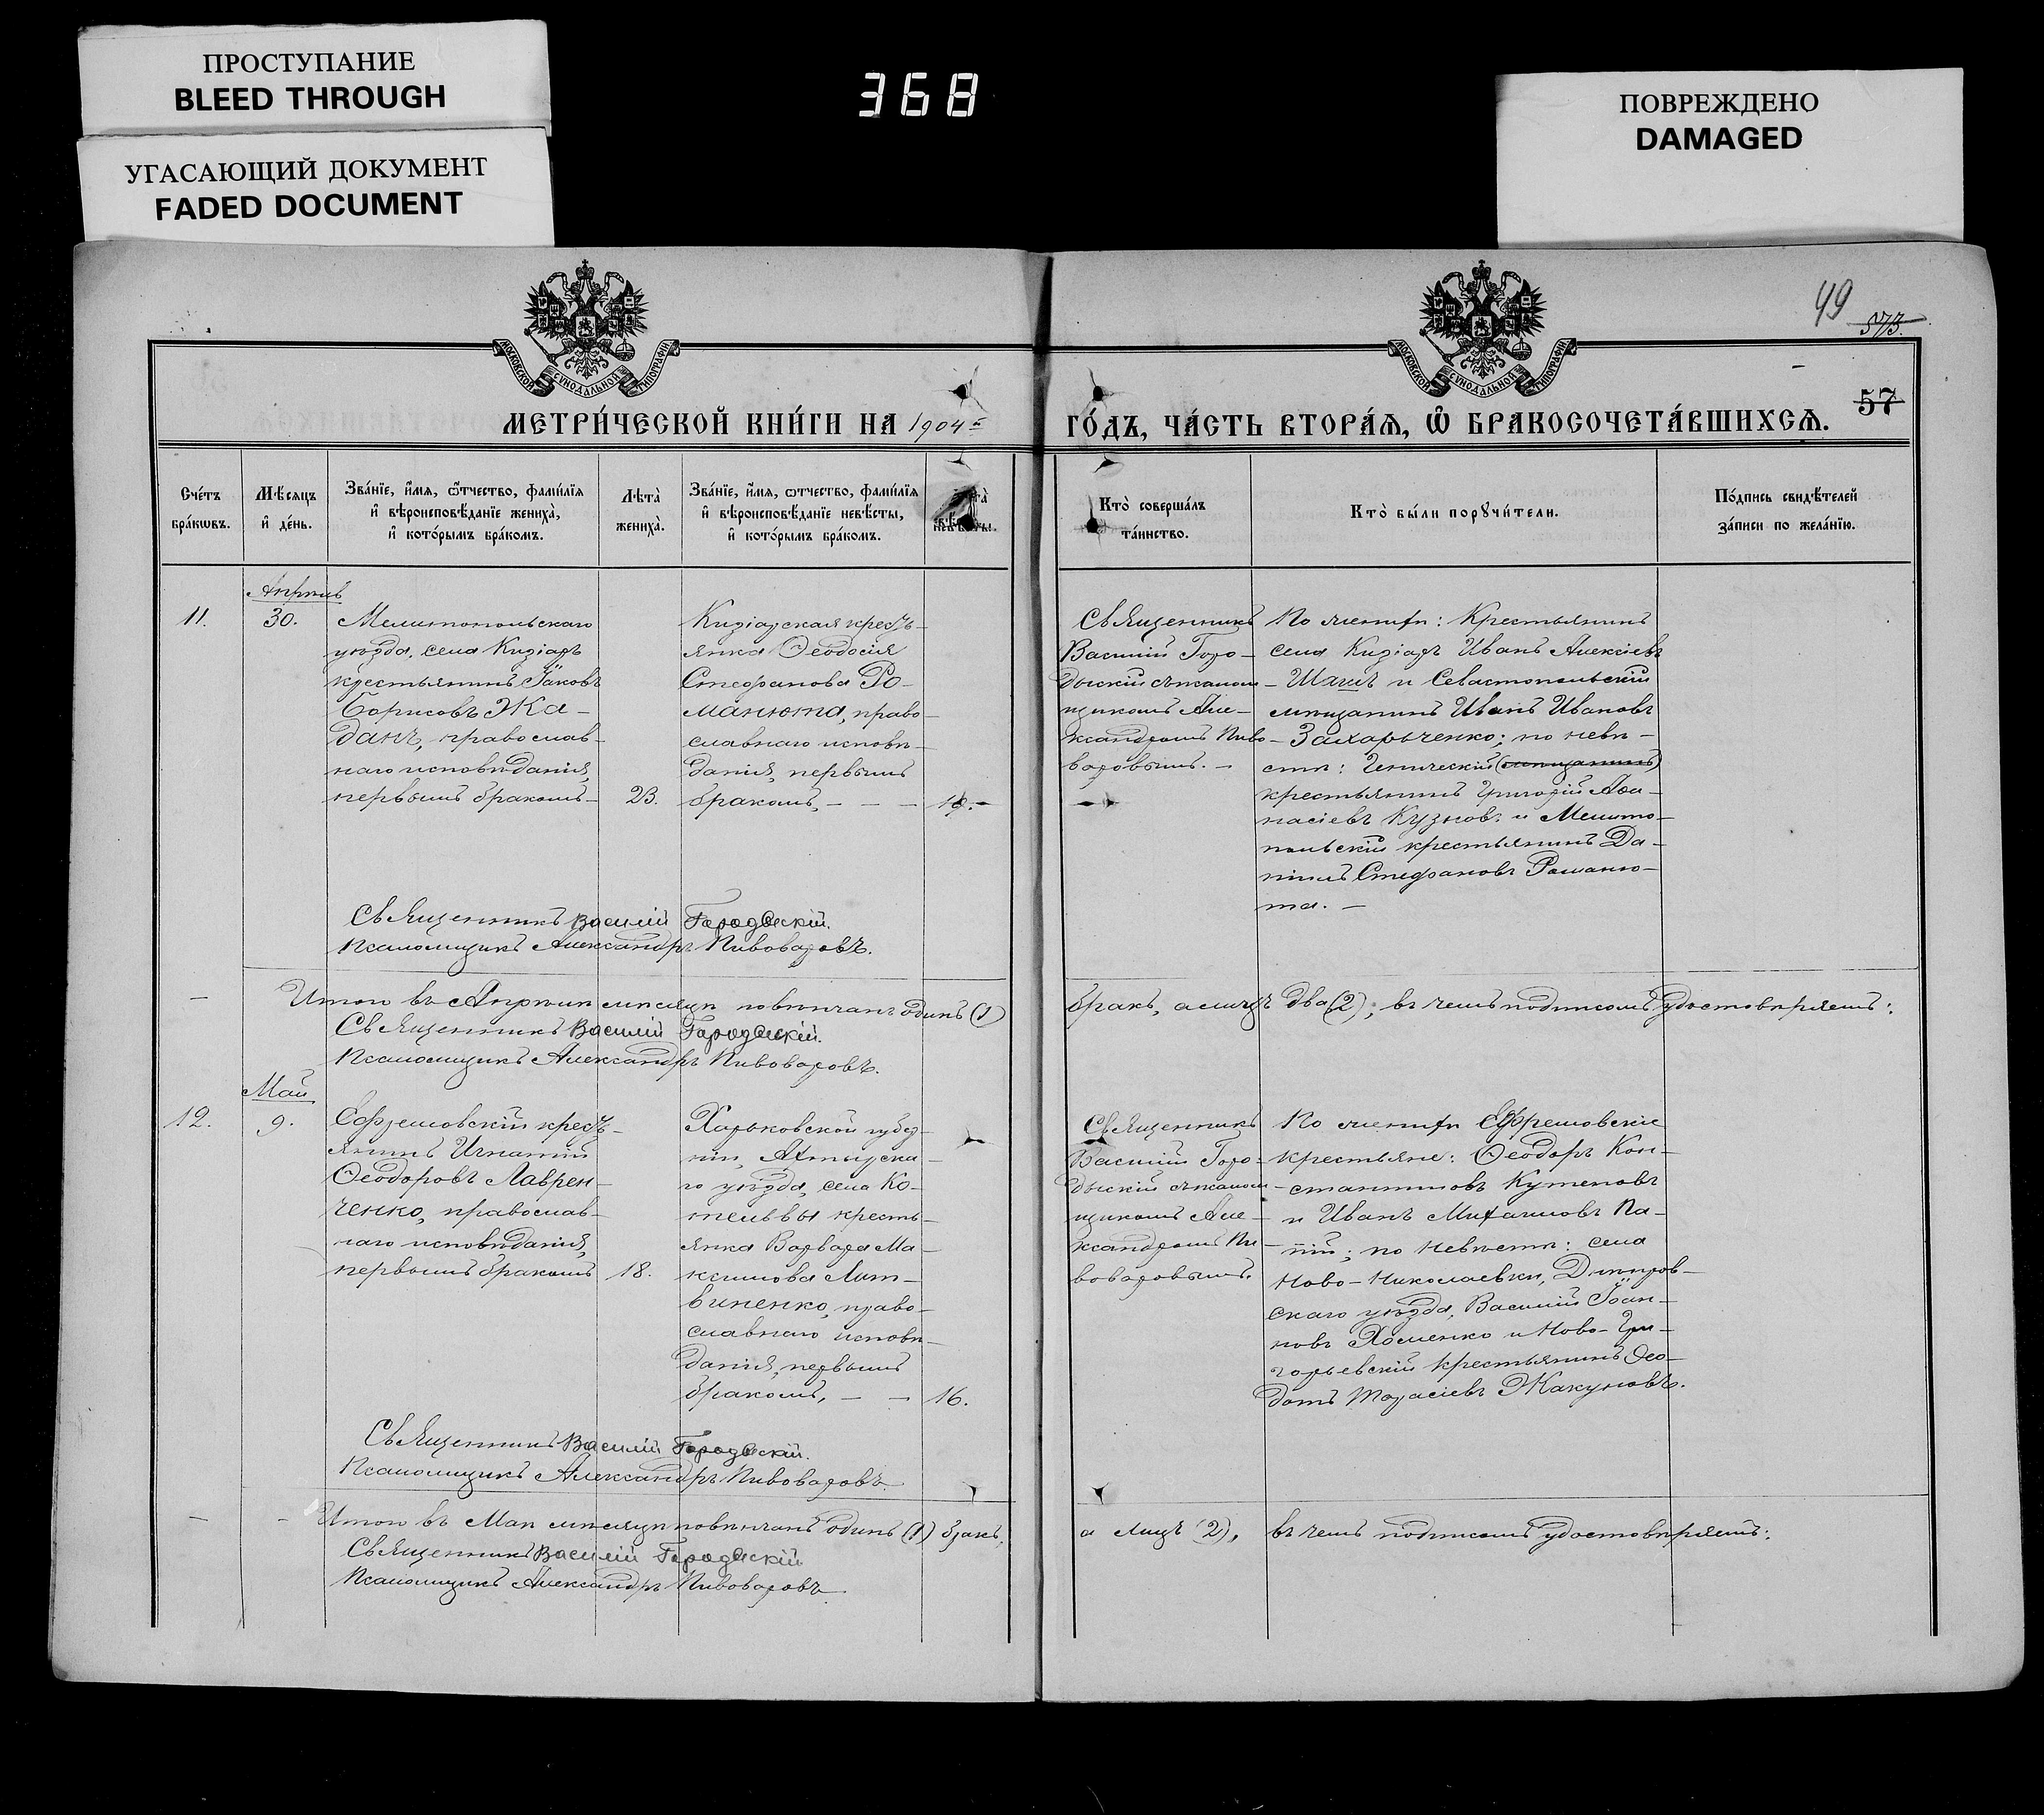 ПРОСТУПАНИЕ
BLEED THROUGH
УГАСАЮЩИЙ ДОКУМЕНТ
FADED DOCUMENT
368
ПОВРЕЖДЕНО
DAMAGED
49
573.
57
МОСКОВСКОЙ СѴНОДАЛЬНОЙ ТИПОГРАФІИ
МОСКОВСКОЙ СѴНОДАЛЬНОЙ ТИПОГРАФІИ
МЕТРИ́ЧЕСКОЙ КНИ́ГИ НА 1904 ГО́ДЪ, ЧА́СТЬ ВТОРА́Я, Ѽ БРАКОСОЧЕТА́ВШИХСѦ.
Сче́тъ бра́кѡвъ.
Мѣ́сяцъ и҆ де́нь.
Зва́нїе, и҆́мя, ѻ҆́тчество, фами́лїя
и҆ вѣроисповѣ́данїе жениха̀,
и҆ кото́рымъ бра́комъ.
Лѣта̀ жениха̀.
Зва́нїе, и҆́мя, ѻ҆́тчество, фами́лїя
и҆ вѣроисповѣ́данїе невѣ́сты,
и҆ кото́рымъ бра́комъ.
невѣ́сты.
Кто̀ соверша́лъ
та́инство.
Кто̀ бы́ли порꙋчи́тели.
По́дпись свидѣ́телей
за́писи по жела́нїю.
Апрѣль
11.
30.
Мелитопольскаго
уѣзда, села Кизіаръ
крестьянинъ Іаковъ
Борисовъ Жа-
данъ, православ-
наго исповѣданія,
первымъ бракомъ-
23.
Кизіарская кресть-
янка Ѳеодосія
Стефанова Ро-
манюта, право-
славнаго исповѣ-
данія, первымъ
бракомъ, - - -
19.
Священникъ
Василій Горо-
дыскій съ псалом-
щикомъ Але-
ксандромъ Пиво-
варовымъ. -
По женихѣ: Крестьянинъ
села Кизіаръ Иванъ Алексіевъ
и Севастопольскій
мѣщанинъ Иванъ Ивановъ
Захарьченко; по невѣ-
стѣ: Геническій (мѣщанинъ)
крестьянинъ Григорій Аѳа-
насіевъ и Мелито-
польскій крестьянинъ Да-
ніилъ Стефановъ Романю-
та. -
Священникъ Василій Городыскій.
Псаломщикъ Александръ Пивоваровъ.
- Итого въ Апрѣлѣ мѣсяцѣ повѣнчанъ одинъ (1) бракъ, а лицъ два (2); въ чемъ подписомъ удостовѣряемъ:
Священникъ Василій Городыскій.
Псаломщикъ Александръ Пивоваровъ.
Май
12.
9.
Ефремовскій кресть-
янинъ Игнатій
Ѳеодоровъ Лаврен-
ченко, православ-
наго исповѣданія,
первымъ бракомъ
18.
Харьковской губер-
ніи, Ахтырска-
го уѣзда, села Ко-
тельвы кресть-
янка Варвара Ма-
ксимова Лит-
виненко, право-
славнаго исповѣ-
данія, первымъ
бракомъ, - -
16.
Священникъ
Василій Горо-
дыскій съ псалом-
щикомъ Але-
ксандромъ Пи-
воваровымъ.
По женихѣ Ефремовскіе
крестьяне: Ѳеодоръ Кон-
стантиновъ Кутеповъ
и Иванъ Михаиловъ Па-
пій; по невѣстѣ: села
Ново-Николаевки, Днѣпров-
скаго уѣзда, Василій Іоан-
новъ Хоменко и Ново-Гри-
горьевскій крестьянинъ Ѳео-
дотъ Тарасіевъ Жакуновъ.
Священникъ Василій Городыскій.
Псаломщикъ Александръ Пивоваровъ.
- - Итого въ Маѣ мѣсяцѣ повѣнчанъ одинъ (1) бракъ, а лицъ (2), въ чемъ подписомъ удостовѣряемъ:
Священникъ Василій Городыскій
Псаломщикъ Александръ Пивоваровъ